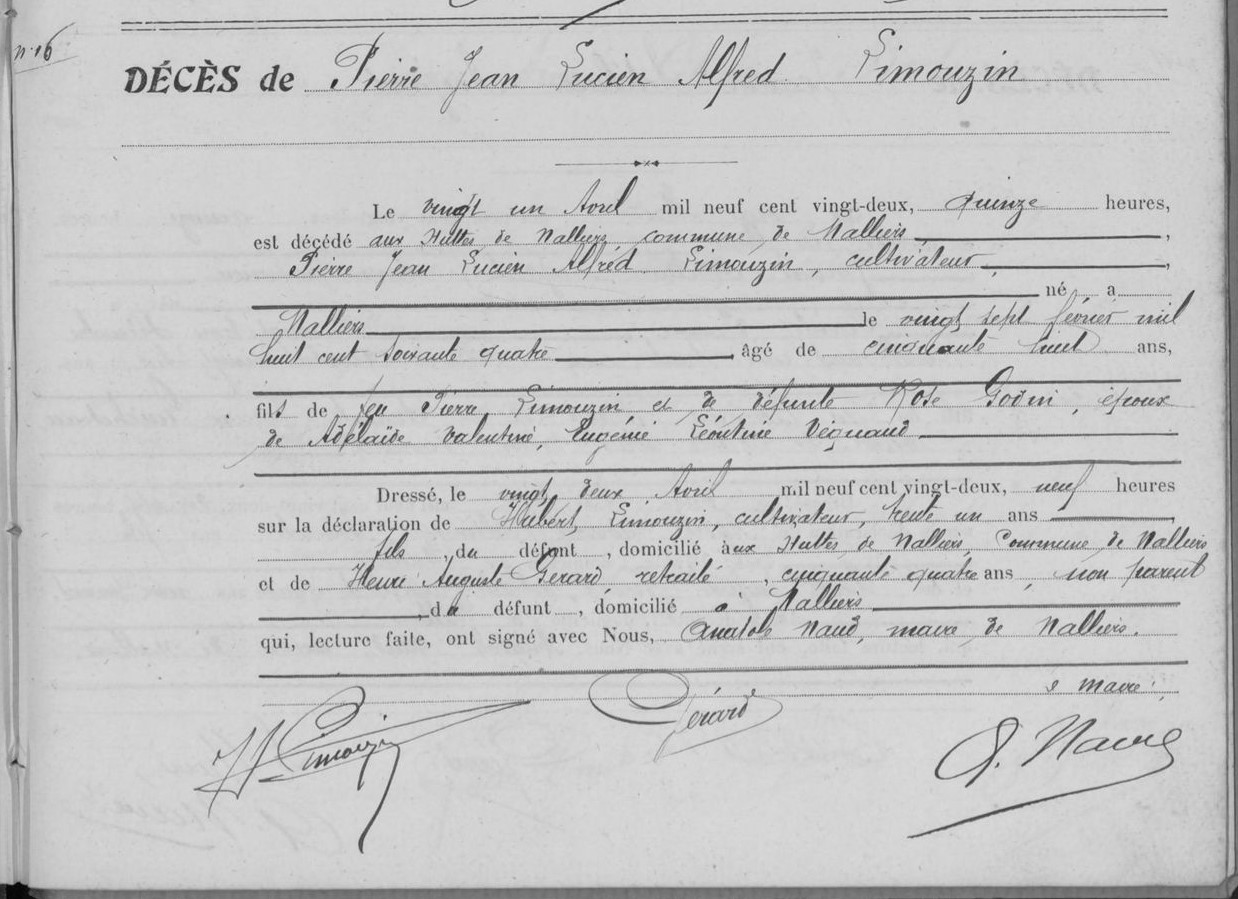 n° 16
DÉCÈS de Pierre Jean Lucien Alfred Limouzin
Le vingt un Avril mil neuf cent vingt-deux, quinze heures,
est décédé aux Huttes de Nalliers, commune de Nalliers,
Pierre Jean Lucien Alfred Limouzin, cultivateur,
né a
Nalliers le vingt sept février mil
huit cent soixante quatre, âgé de cinquante huit ans,
fils de feu Pierre Limouzin, et de défunte Rose Godin, époux
de Adélaïde Valentine, Eugénie Léontine Végnaud
Dressé, le vingt deux Avril mil neuf cent vingt-deux, neuf heures
sur la déclaration de Hubert Limouzin, cultivateur, trente un ans,
fils, du défunt, domicilié aux Huttes de Nalliers, Commune de Nalliers
et de Henri Auguste Gerard retraité, cinquante quatre ans, non parent
du défunt, domicilié à Nalliers
qui, lecture faite, ont signé avec Nous, Anatole Naud, maire de Nalliers.
maire
H Limouzin
Gérard
A. Naud